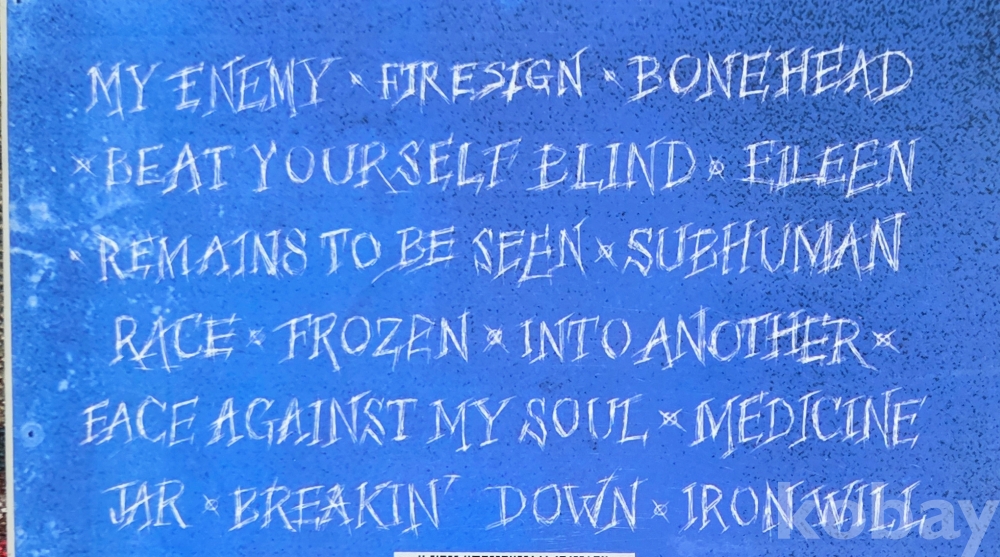 MY ENEMY × FIRESIGN × BONEHEAD
× BEAT YOURSELF BLIND × EILEEN
× REMAINS TO BE SEEN × SUBHUMAN
RACE × FROZEN × INTO ANOTHER ×
FACE AGAINST MY SOUL × MEDICINE
JAR × BREAKIN' DOWN × IRON WILL
kobay